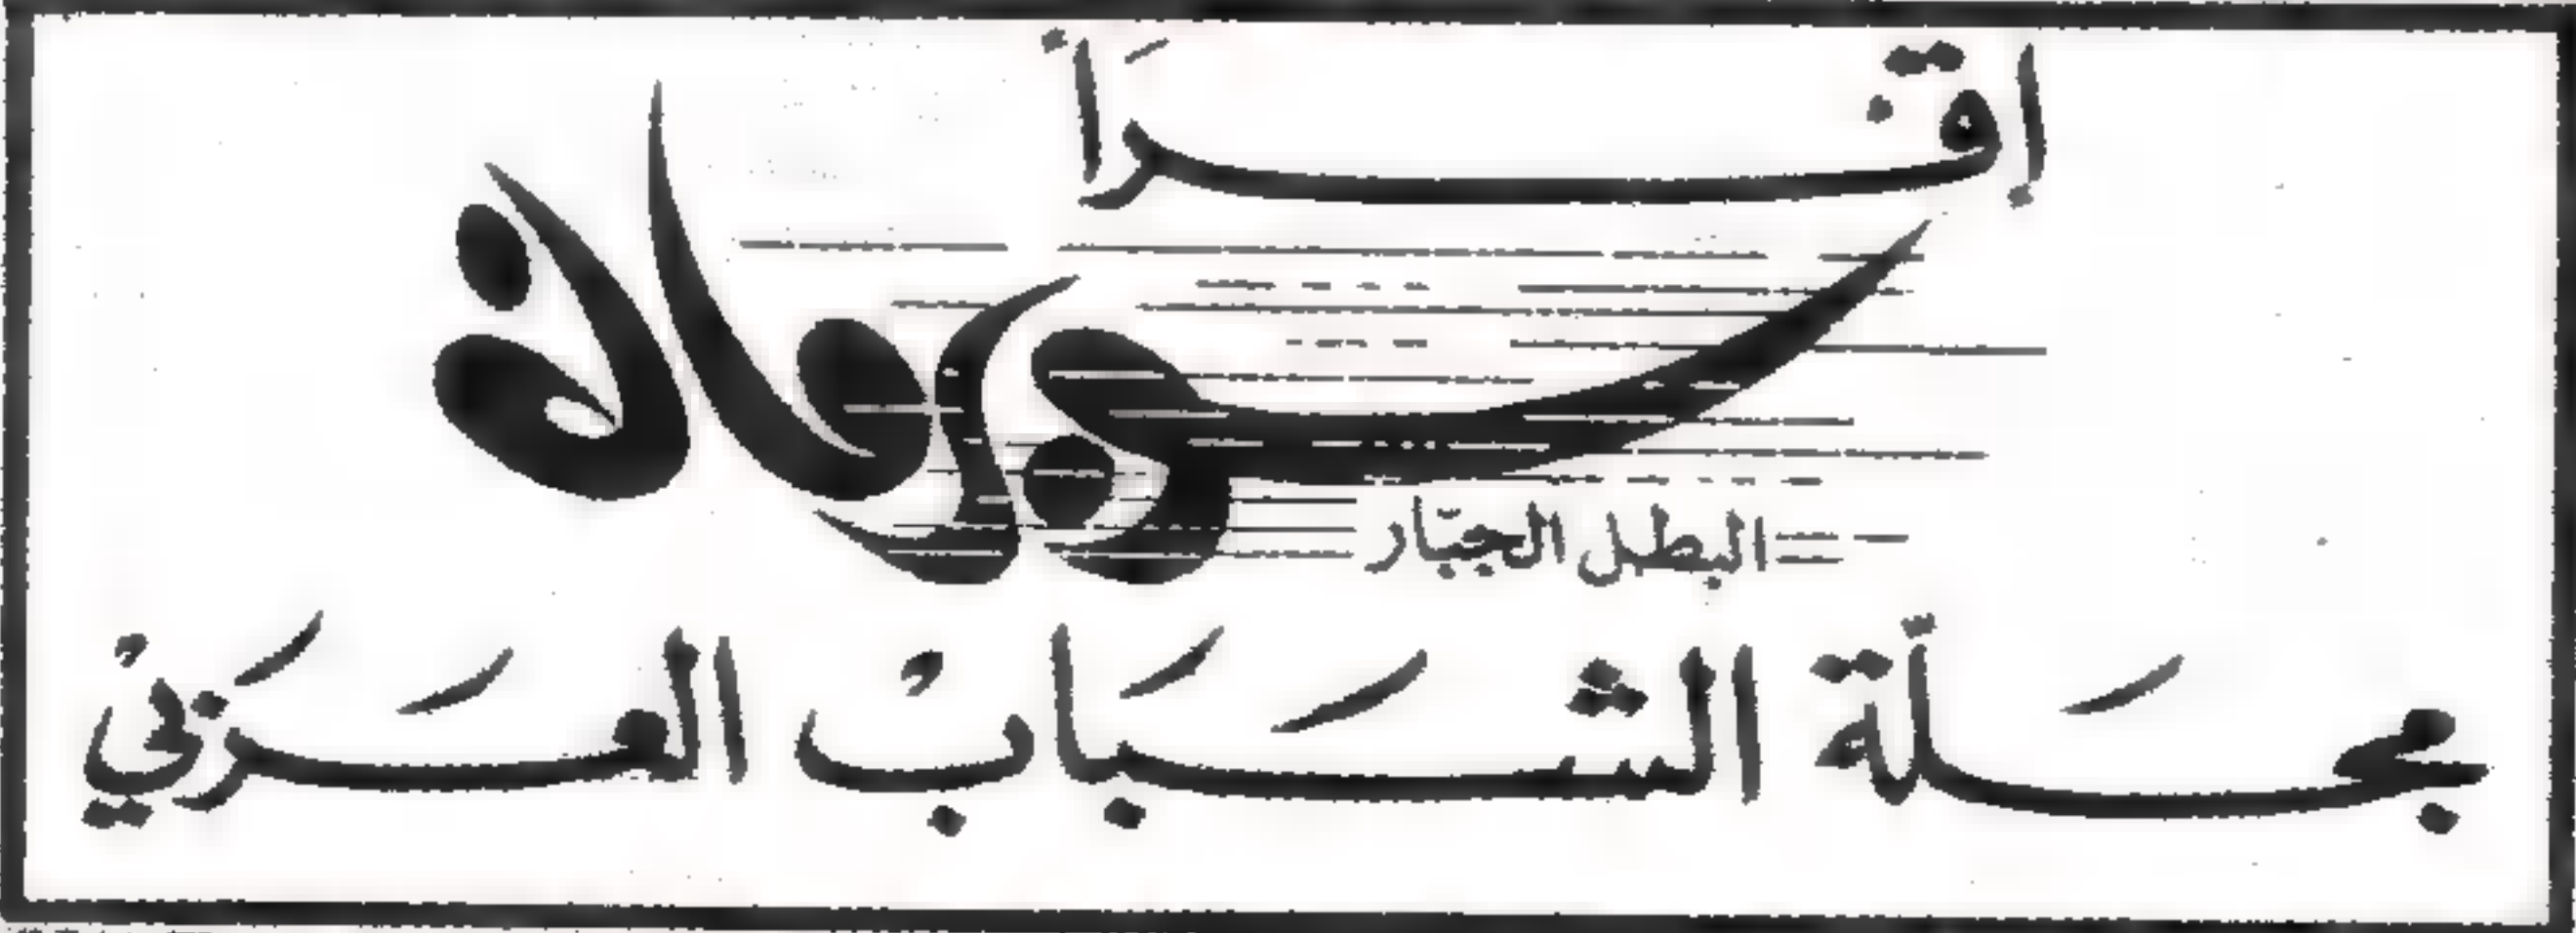 إقرأ
سوبرمان
البطل الجبّار
مجَلّة الشبَاب العَرَبي